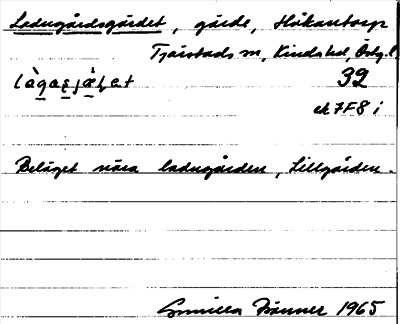 Ladugårdsgärdet, gärde, Håkantorp
Tjärstads sn, Kinds hd, Östg.l.
39
ek 7F8 i
Beläget nära ladugården, Lillgården.
Gunilla 1965